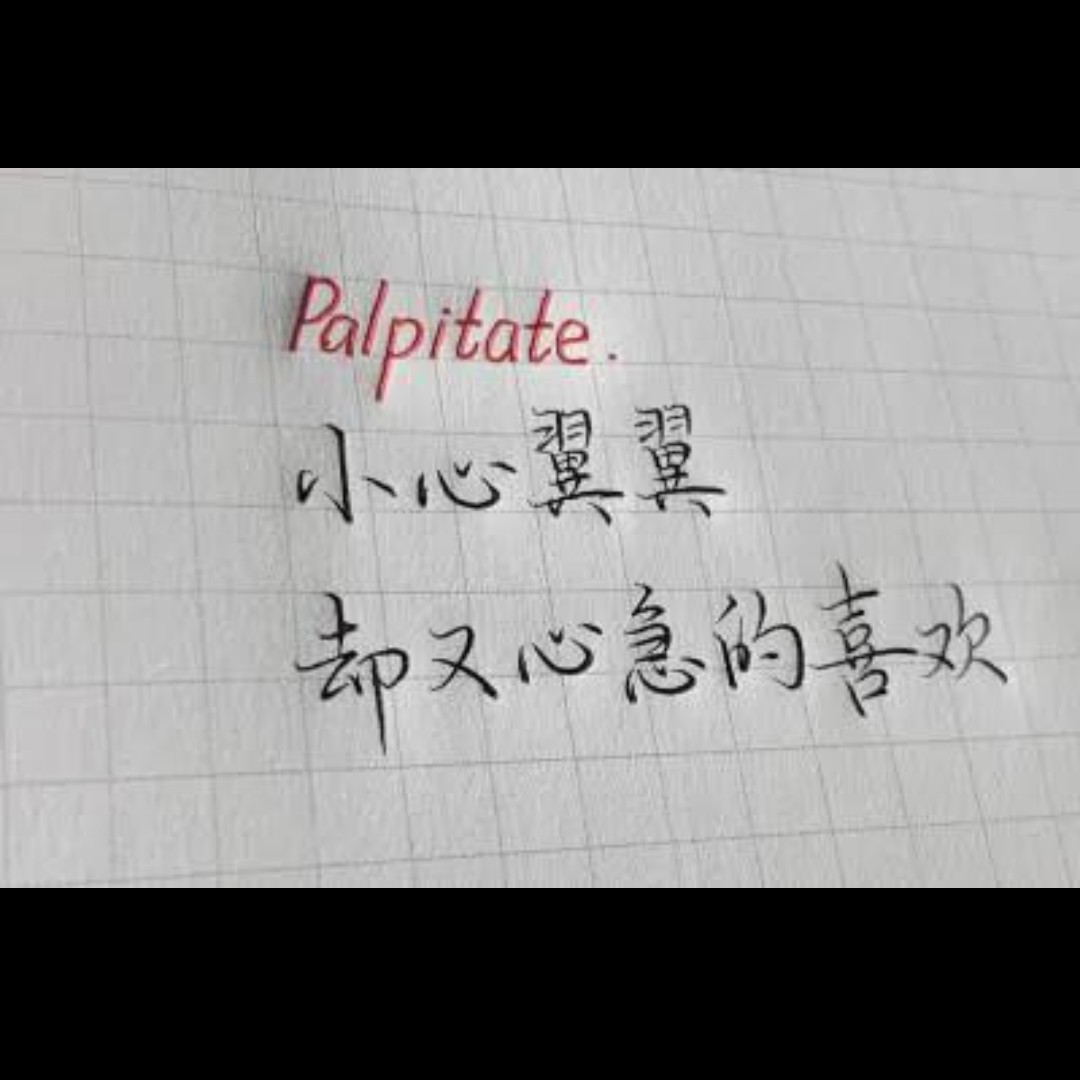 Palpitate.
小心翼翼
却又心急的喜欢